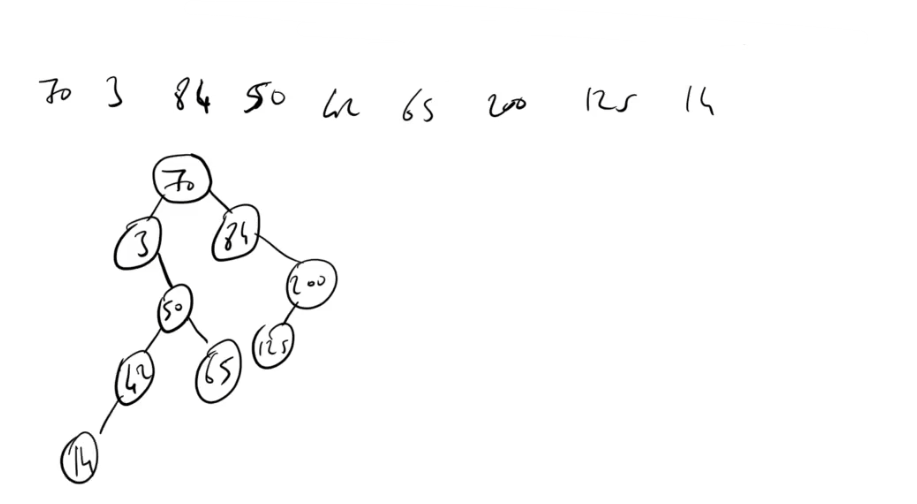 70 3 84 50 42 65 200 125 14
70
3 84
200
50
125
42 65
14